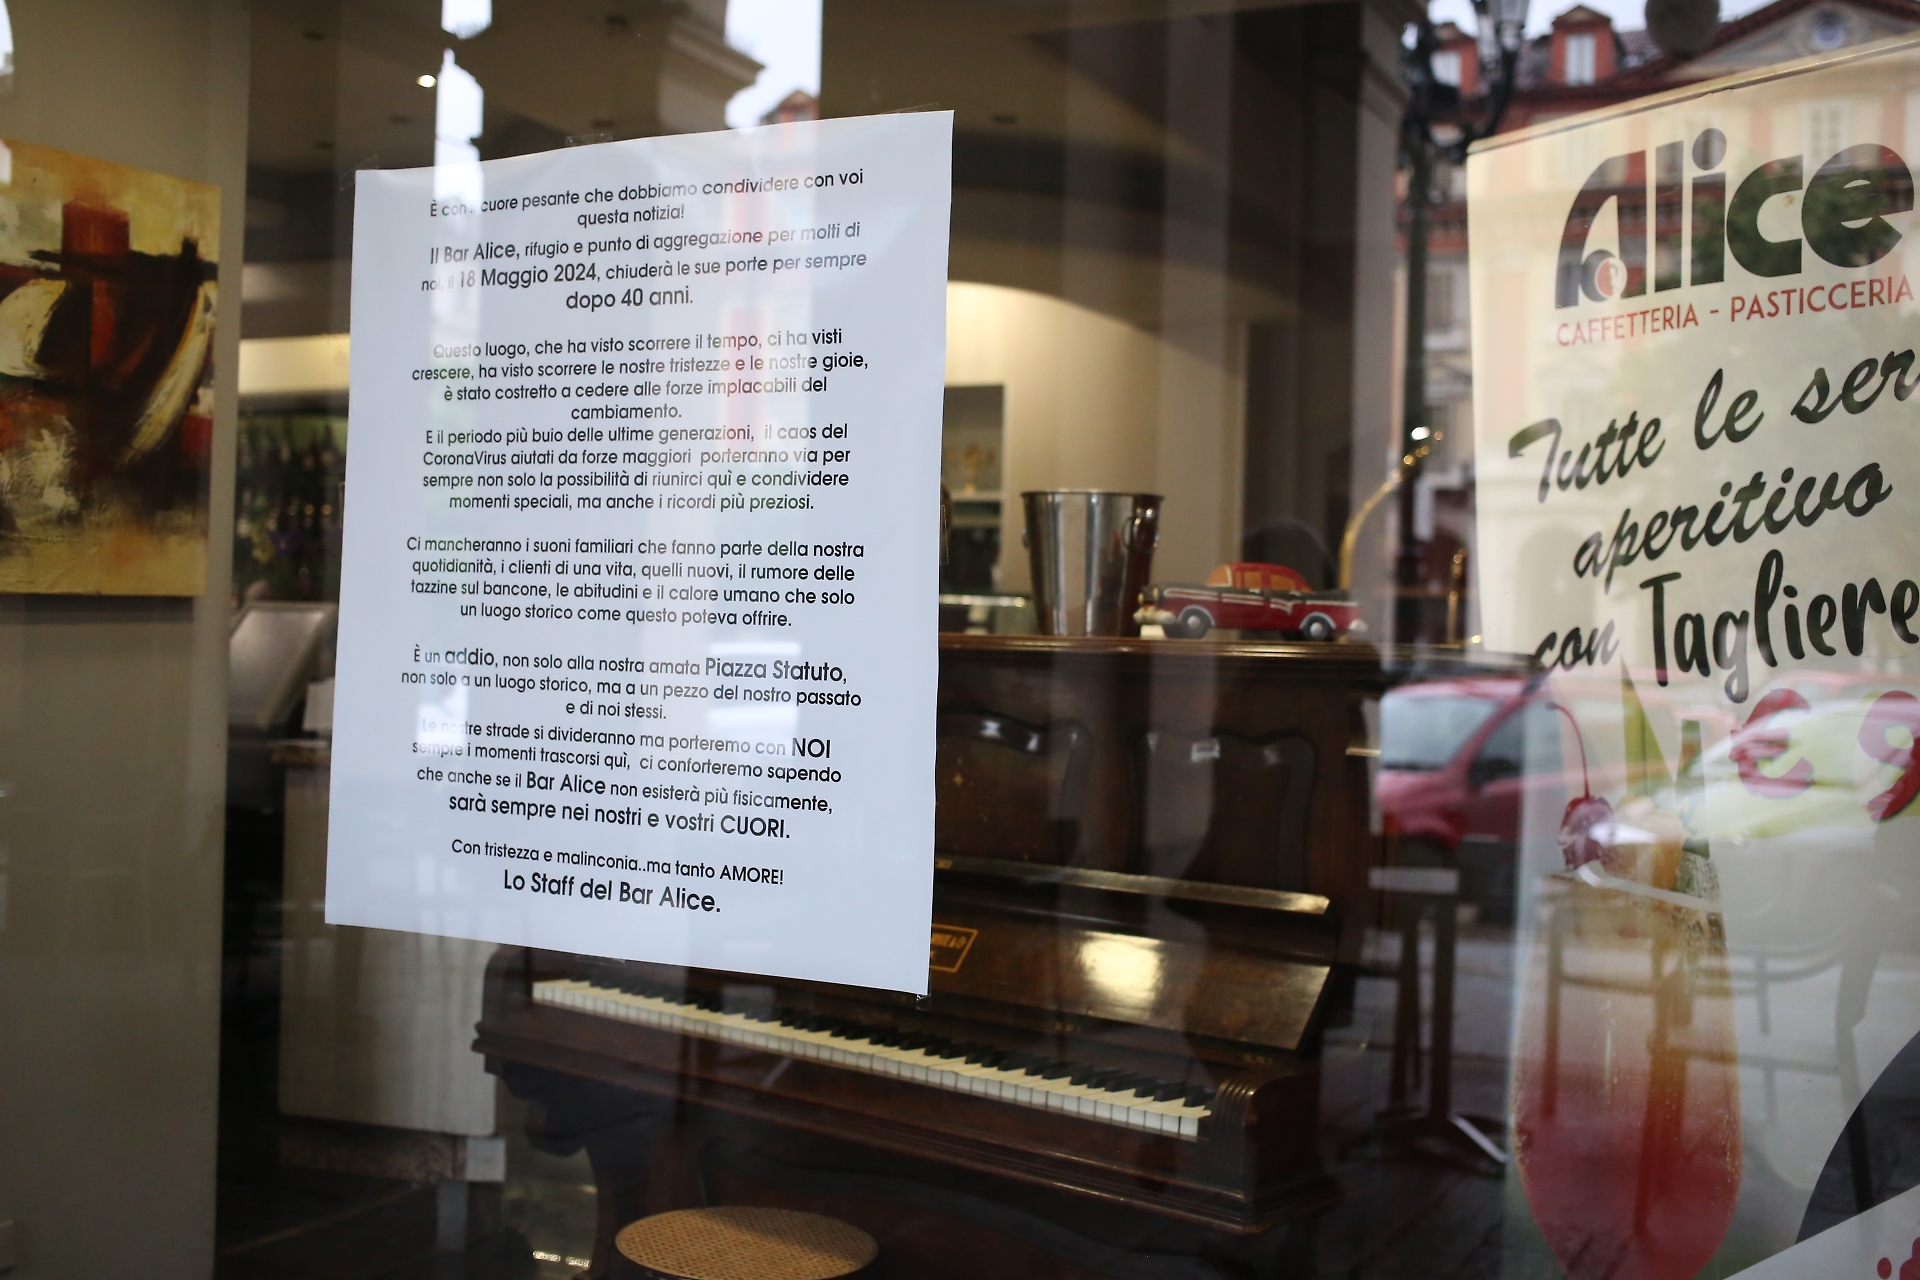 È con cuore pesante che dobbiamo condividere con voi
questa notizia!
Il Bar Alice, rifugio e punto di aggregazione per molti di
noi, il 18 Maggio 2024, chiuderà le sue porte per sempre
dopo 40 anni.
Questo luogo, che ha visto scorrere il tempo, ci ha visti
crescere, ha visto scorrere le nostre tristezze e le nostre gioie,
è stato costretto a cedere alle forze implacabili del
cambiamento.
E il periodo più buio delle ultime generazioni, il caos del
CoronaVirus aiutati da forze maggiori porteranno via per
sempre non solo la possibilità di riunirci quì e condividere
momenti speciali, ma anche i ricordi più preziosi.
Ci mancheranno i suoni familiari che fanno parte della nostra
quotidianità, i clienti di una vita, quelli nuovi, il rumore delle
tazzine sul bancone, le abitudini e il calore umano che solo
un luogo storico come questo poteva offrire.
È un addio, non solo alla nostra amata Piazza Statuto,
non solo a un luogo storico, ma a un pezzo del nostro passato
e di noi stessi.
Le nostre strade si divideranno ma porteremo con NOI
sempre i momenti trascorsi quì, ci conforteremo sapendo
che anche se il Bar Alice non esisterà più fisicamente,
sarà sempre nei nostri e vostri CUORI.
Con tristezza e malinconia..ma tanto AMORE!
Lo Staff del Bar Alice.
Alice
CAFFETTERIA - PASTICCERIA
Tutte le ser
aperitivo
con Tagliere